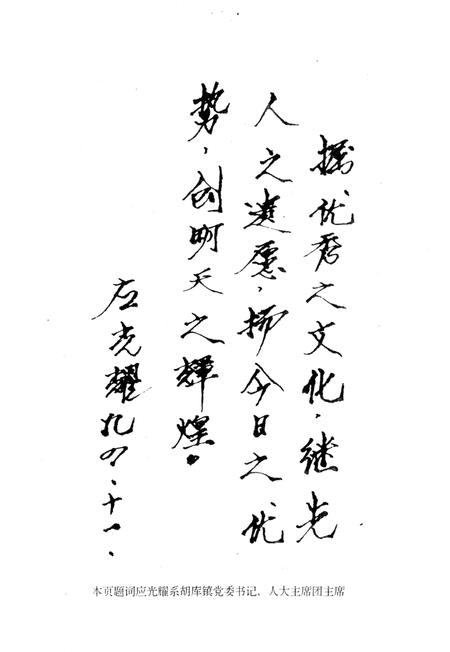 掘优秀之文化，继先
人之遗愿，扬今日之优
势，创明天之輝煌。
应光耀九四、十一、
本页题词应光耀系胡库镇党委书记、人大主席团主席